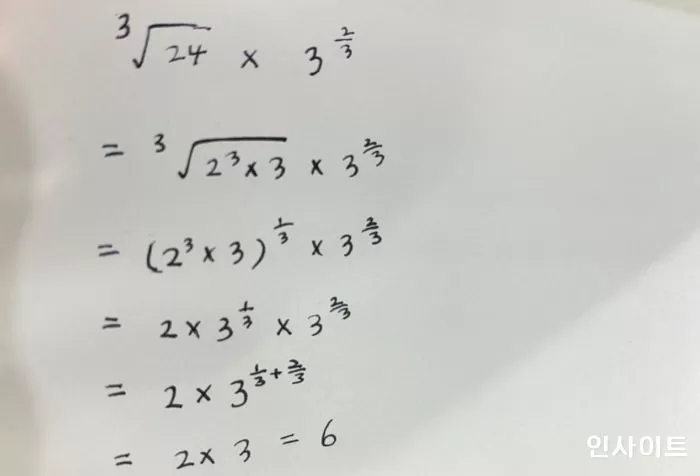 ³√24 × 3^(2/3)
= ³√(2³ × 3) × 3^(2/3)
= (2³ × 3)^(1/3) × 3^(2/3)
= 2 × 3^(1/3) × 3^(2/3)
= 2 × 3^(1/3 + 2/3)
= 2 × 3 = 6
인사이트